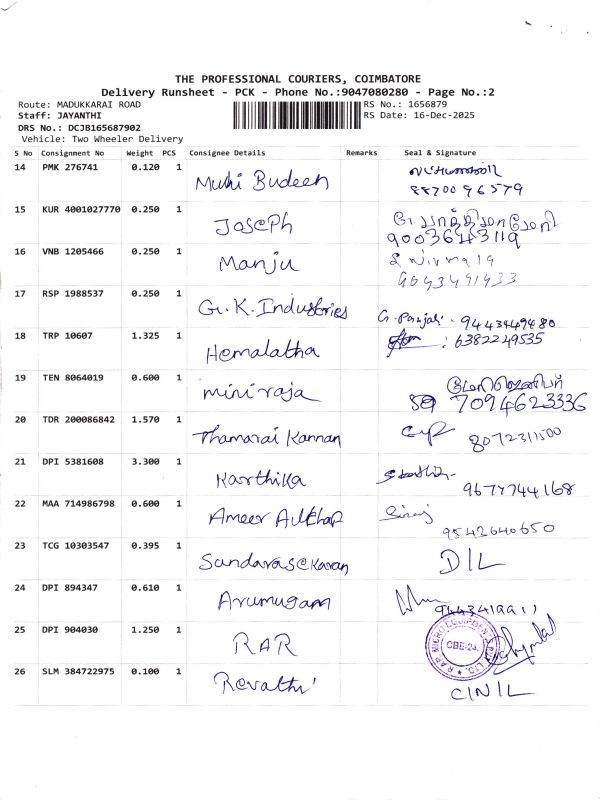 THE PROFESSIONAL COURIERS, COIMBATORE
Delivery Runsheet - PCK - Phone No.:9047080280 - Page No.:2
Route: MADUKKARAI ROAD RS No.: 1656879
Staff: JAYANTHI RS Date: 16-Dec-2025
DRS No.: DCJB165687902
Vehicle: Two Wheeler Delivery
S No Consignment No Weight PCS Consignee Details Remarks Seal & Signature
14 PMK 276741 0.120 1 Muhi Budeen
8870096579
15 KUR 4001027770 0.250 1 Joseph
9003643119
16 VNB 1205466 0.250 1 Manju
9043491933
17 RSP 1988537 0.250 1 G.K. Industries G. Panjali. 9443449480
18 TRP 10607 1.325 1 Hemalatha : 6382249535
19 TEN 8064019 0.600 1 miniraja
7094623336
20 TDR 200086842 1.570 1 Thamarai Kannan 8072311500
21 DPI 5381608 3.300 1 Karthika
9677744168
22 MAA 714986798 0.600 1 Ameer Siraj
9542640650
23 TCG 10303547 0.395 1 Sundarasekaran DIL
24 DPI 894347 0.610 1 Arumugam
25 DPI 904030 1.250 1 RAR CBE-24.
26 SLM 384722975 0.100 1 Revathi CINIL